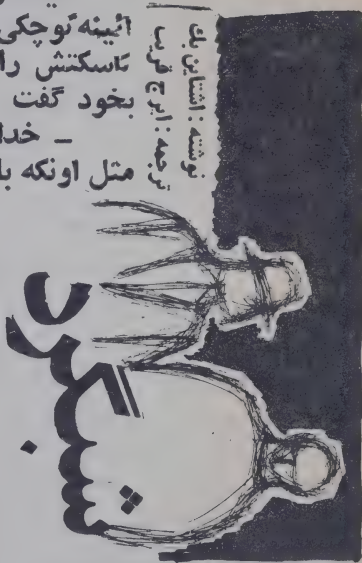 آئینه کوچکی
کاسکتش را
بخود گفت
ـ خدا
مثل اونکه با
نوشته : اشتاین بك
ترجمه : ایرج قریب
شبگرد